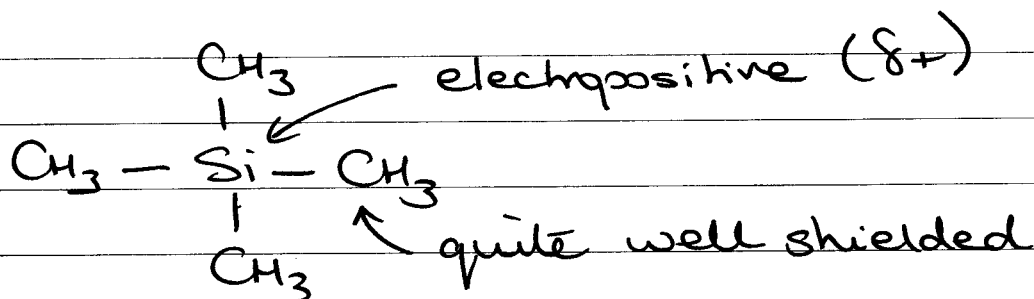 CH3 electropositive (δ+)
CH3 — Si — CH3
CH3 quite well shielded